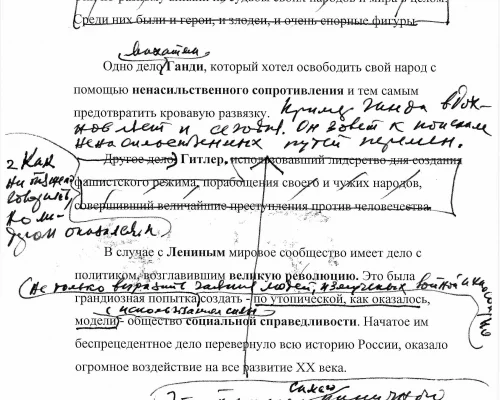 Среди них были и герои, и злодеи, и очень спорные фигуры.
Махатмы
Одно дело Ганди, который хотел освободить свой народ с
помощью ненасильственного сопротивления и тем самым
предотвратить кровавую развязку. Пример Ганди вдох-
новляет и сегодня. Он зовет к поискам
ненасильственных путей перемен.
Другое дело Гитлер, использовавший лидерство для создания
фашистского режима, порабощения своего и чужих народов,
совершивший величайшие преступления против человечества.
Как
ни
оказался
В случае с Лениным мировое сообщество имеет дело с
политиком, возглавившим великую революцию. Это была
не только выразить чаяния людей, измученных войной и
грандиозная попытка создать - по утопической, как оказалось,
с использованием силы
модели - общество социальной справедливости. Начатое им
беспрецедентное дело перевернуло всю историю России, оказало
огромное воздействие на все развитие XX века.
самого